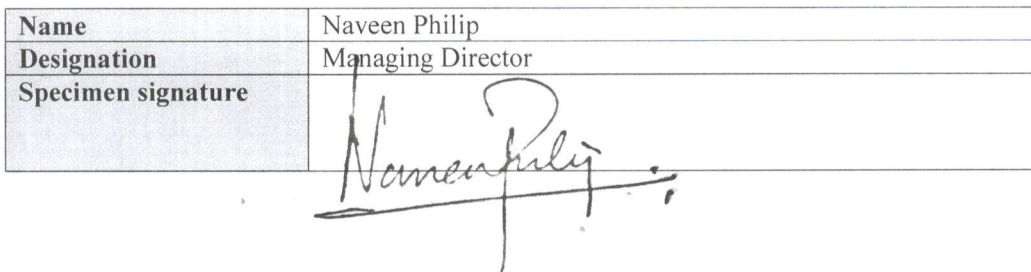 Name Naveen Philip
Designation Managing Director
Specimen signature NaveenPhilip